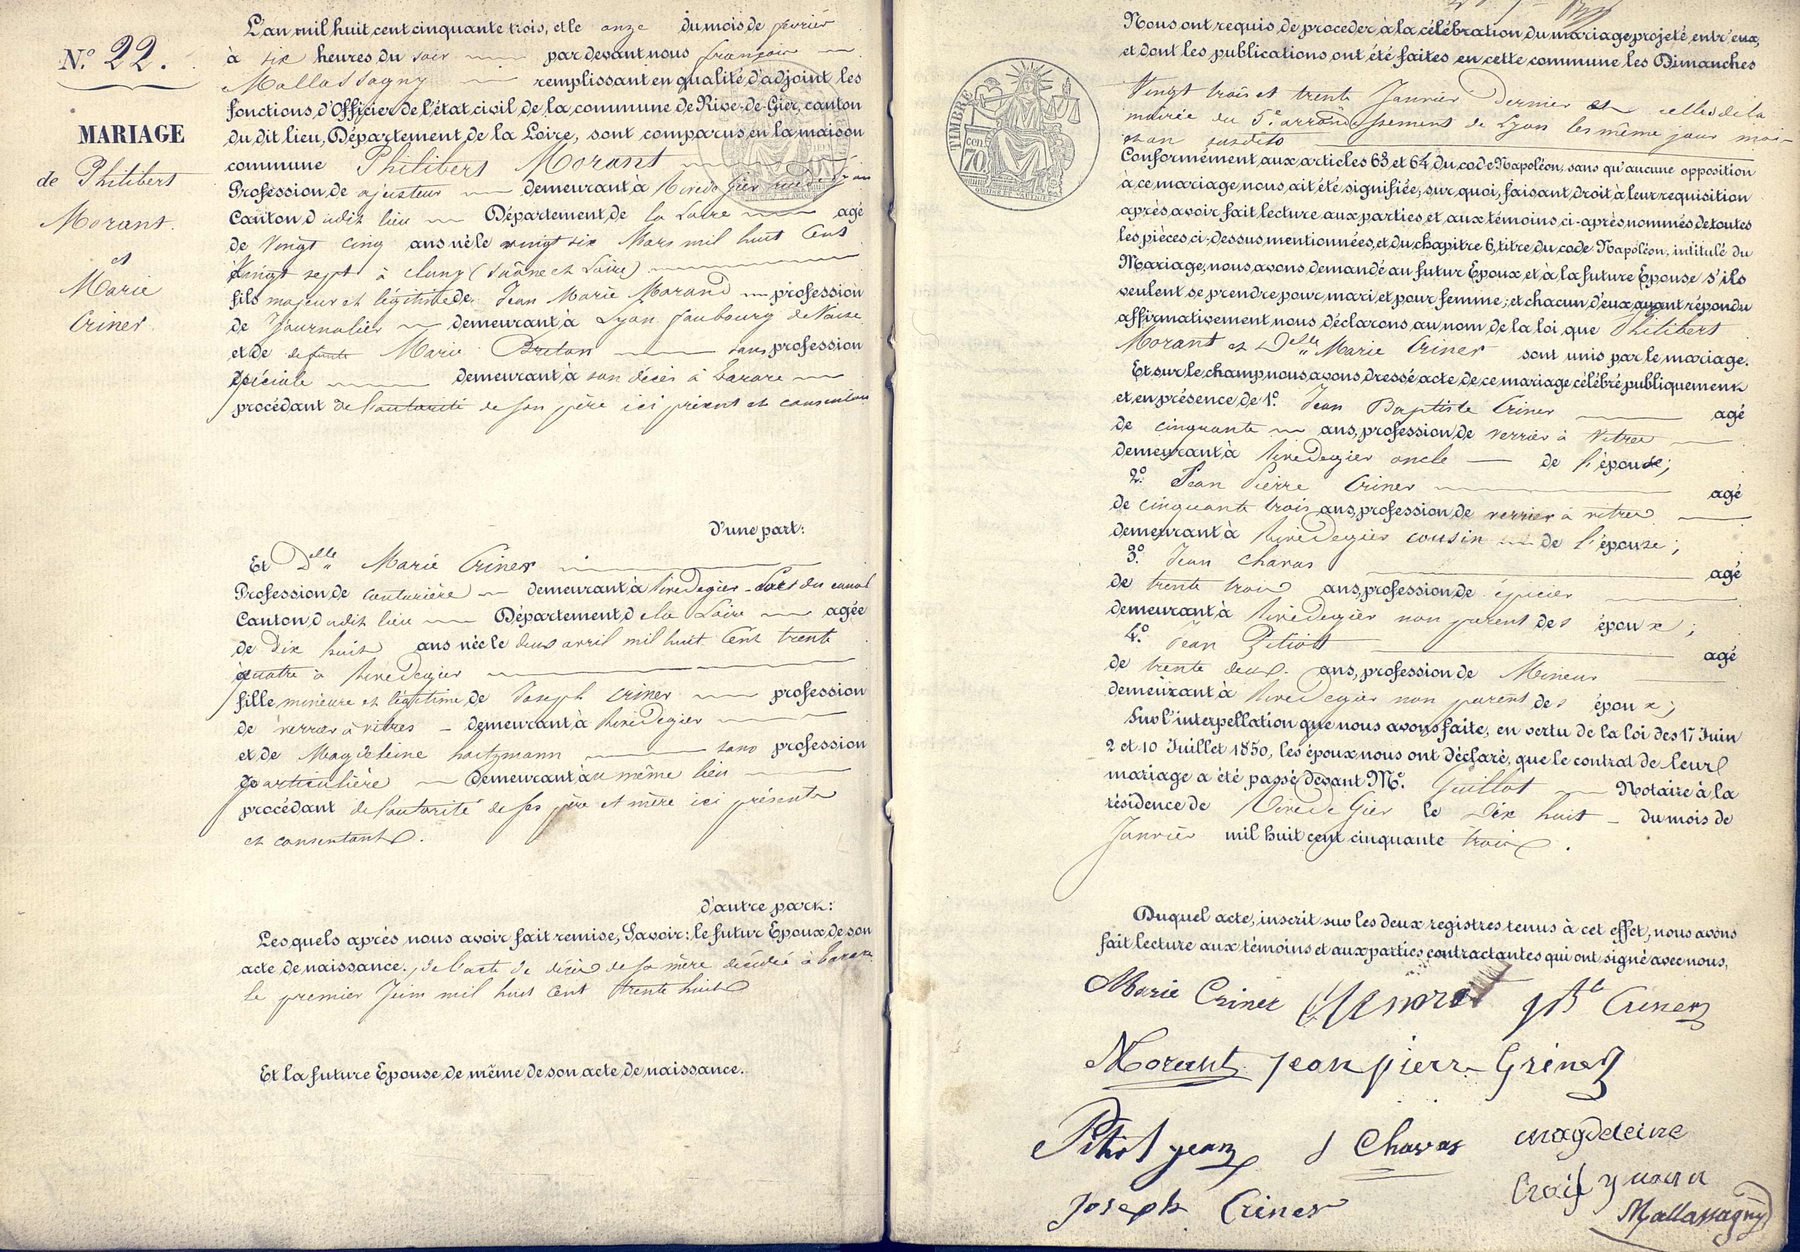 N.º 22.
MARIAGE
de Philibert
Morant.
et
Marie
Criner.
L'an mil huit cent cinquante trois, et le onze du mois de février
à six heures du soir par devant nous françois
Mallassagny remplissant en qualité d'adjoint les
fonctions d'Officier de l'état civil de la commune de Rive-de-Gier, canton
du dit lieu, Département de la Loire, sont comparus en la maison
commune Philibert Morant
Profession de ajusteur demeurant à Rive de Gier
Canton dudit lieu Département de la Loire agé
de vingt cinq ans né le vingt six Mars mil huit Cent
Vingt sept à Cluny (Saône et Loire)
fils majeur et légitime de Jean Marie Morand profession
de Journalier demeurant à Lyon faubourg de Vaise
et de defunte Marie Breton sans profession
spéciale demeurant à son décès à Tarare
procédant de l'autorité de son père ici présent et consentant
d'une part:
Et Delle Marie Criner
Profession de couturière demeurant à RivedeGier du canal
Canton dudit lieu Département de la Loire agée
de Dix huit ans née le deux avril mil huit Cent trente
quatre à RivedeGier
fille mineure et légitime de Joseph Criner profession
de verrier à vitres demeurant à RivedeGier
et de Magdeleine sans profession
particulière demeurant au même lieu
procédant de l'autorité de ses père et mère ici présents
et consentants.
d'autre part:
Lesquels après nous avoir fait remise, Savoir: le futur Epoux de son
acte de naissance, de l'acte de décès de sa mère décédée à Tarare
le premier Juin mil huit Cent trente huit
Et la future Epouse, de même de son acte de naissance.
TIMBRE
70
Nous ont requis de proceder à la célébration du mariage projeté entr'eux,
et dont les publications ont été faites en cette commune les Dimanches
Vingt trois et trente Janvier Dernier et celles de la
mairie du 5e arrondissement de Lyon les même jours mois
et an susdits
Conformément aux articles 63 et 64 du code Napoléon, sans qu'aucune opposition
à ce mariage nous ait été signifiée, sur quoi, faisant droit à leur requisition
après avoir fait lecture aux parties et aux témoins ci-après nommés de toutes
les pièces ci-dessus mentionnées, et du chapitre 6, titre du code Napoléon, intitulé du
Mariage, nous avons demandé au futur Epoux et à la future Epouse s'ils
veulent se prendre pour mari et pour femme; et chacun d'eux ayant répondu
affirmativement nous déclarons au nom de la loi que Philibert
Morant et Delle Marie Criner sont unis par le mariage.
Et sur le champ nous avons dressé acte de ce mariage célébré publiquement
et en présence de 1º. Jean Baptiste Criner agé
de cinquante ans, profession de verrier à Vitres
demeurant à RivedeGier oncle de l'épouse;
2º. Jean Pierre Criner agé
de cinquante trois ans, profession de verrier à vitres
demeurant à RivedeGier cousin de l'épouse;
3º. Jean Chavas agé
de trente trois ans, profession de épicier
demeurant à RivedeGier non parent des époux;
4º. Jean Pitiot agé
de trente deux ans, profession de Mineur
demeurant à RivedeGier non parent des époux;
Sur l'interpellation que nous avons faite, en vertu de la loi des 17 Juin
2 et 10 Juillet 1850, les époux nous ont déclaré, que le contrat de leur
mariage a été passé devant Me. Guillot Notaire à la
résidence de Rive de Gier le Dix huit du mois de
Janvier mil huit cent cinquante trois.
Duquel acte, inscrit sur les deux registres tenus à cet effet, nous avons
fait lecture aux témoins et aux parties contractantes qui ont signé avec nous,
Marie Criner Criner
Morant Jean pierre Griner
Pitiot jean J Chavas magdeleine
Joseph Criner
Mallassagny